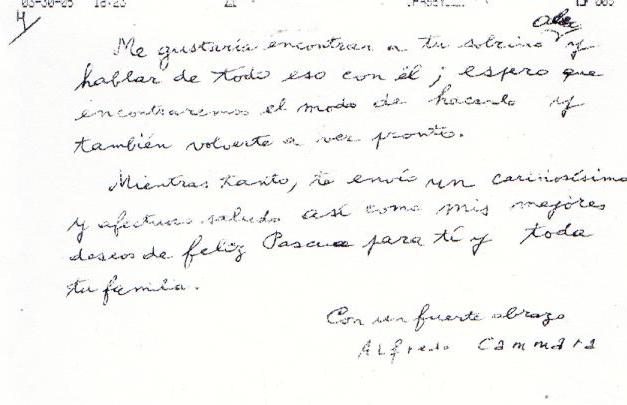 03-30-05 16:23
4
Me gustaría encontrar a tu sobrino y
hablar de todo eso con él; espero que
encontraremos el modo de hacerlo y
también volverte a ver pronto.
Mientras tanto, te envío un cariñosísimo
y afectuoso saludo así como mis mejores
deseos de feliz Pascua para tí y toda
tu familia.
Con un fuerte abrazo
Alfredo Cammara